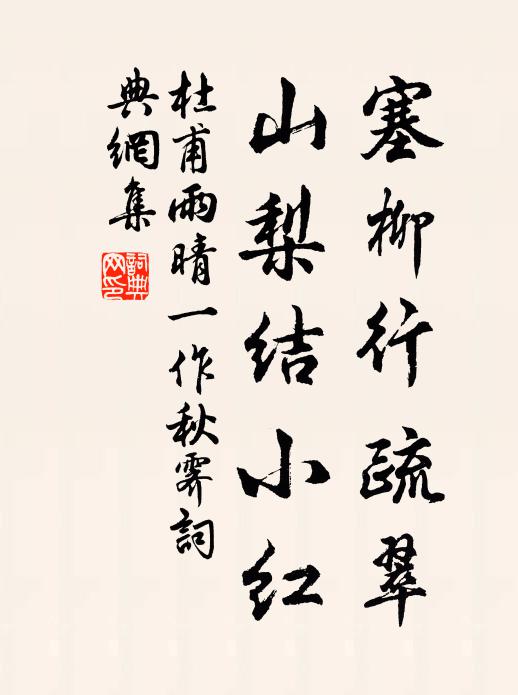 塞柳行疏翠
山梨结小红
杜甫雨晴一作秋霁詞
典網集
詞典
网印